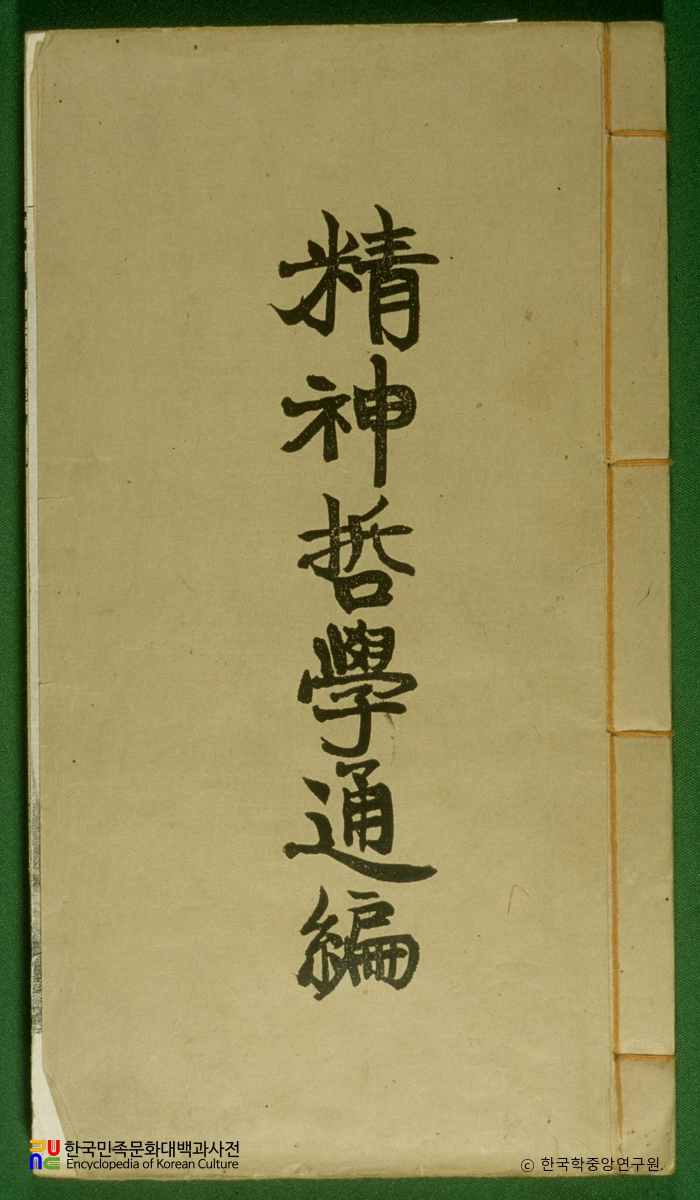 精神哲學通編
한국민족문화대백과사전
Encyclopedia of Korean Culture
© 한국학중앙연구원.